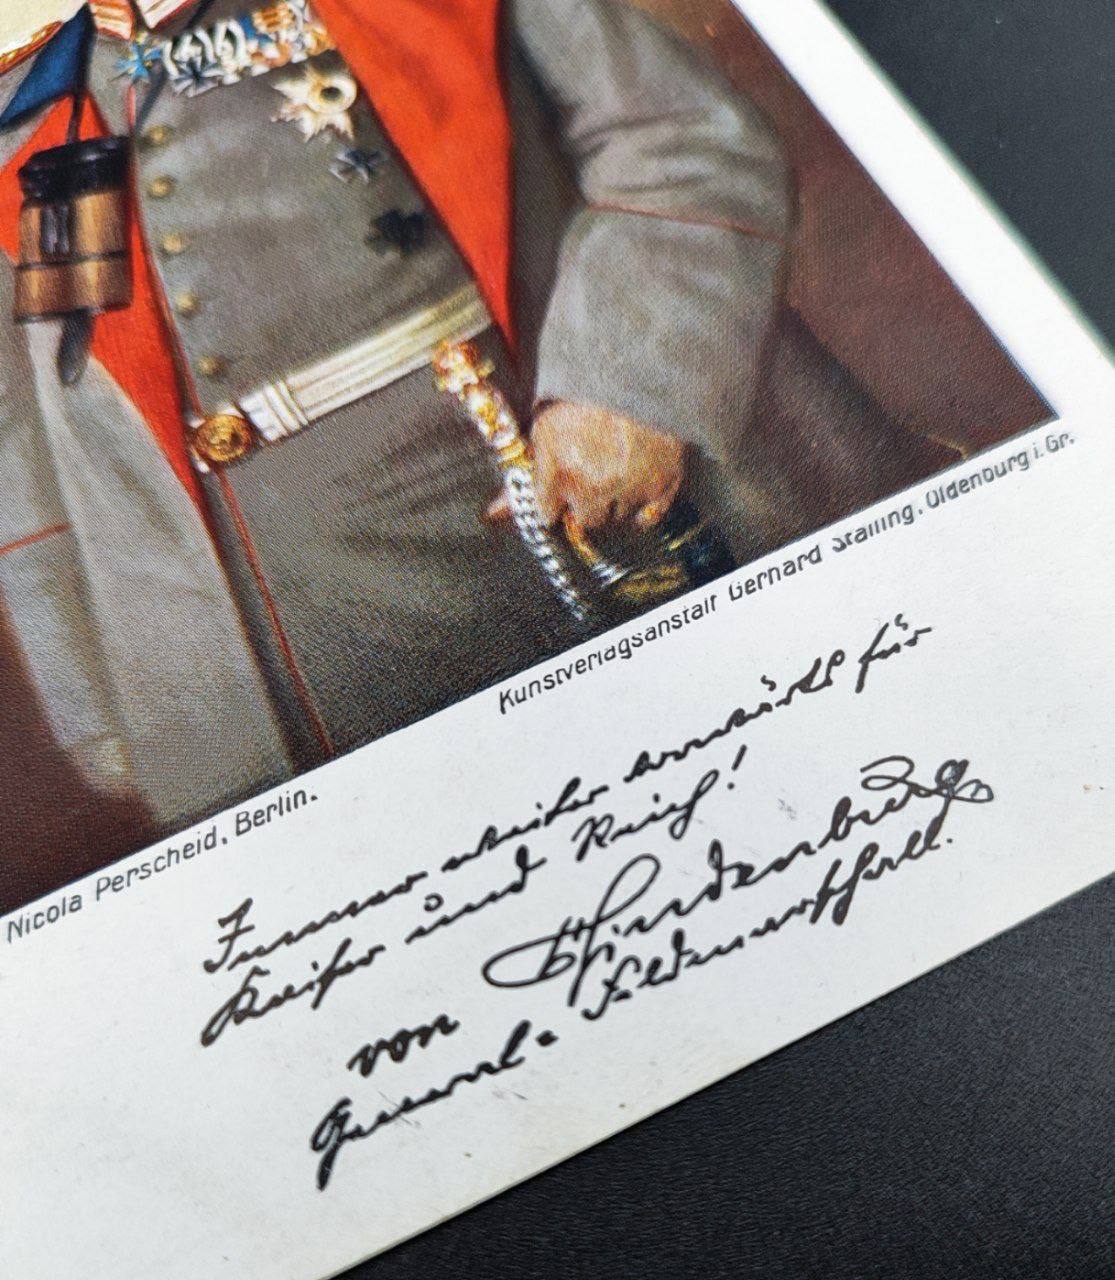 Nicola Perscheid, Berlin.
Kunstverlagsanstalt Gerhard Stalling, Oldenburg i. Gr.
Immer weiter vorwärts für
Kaiser und Reich!
von Hindenburg
General-Feldmarschall.